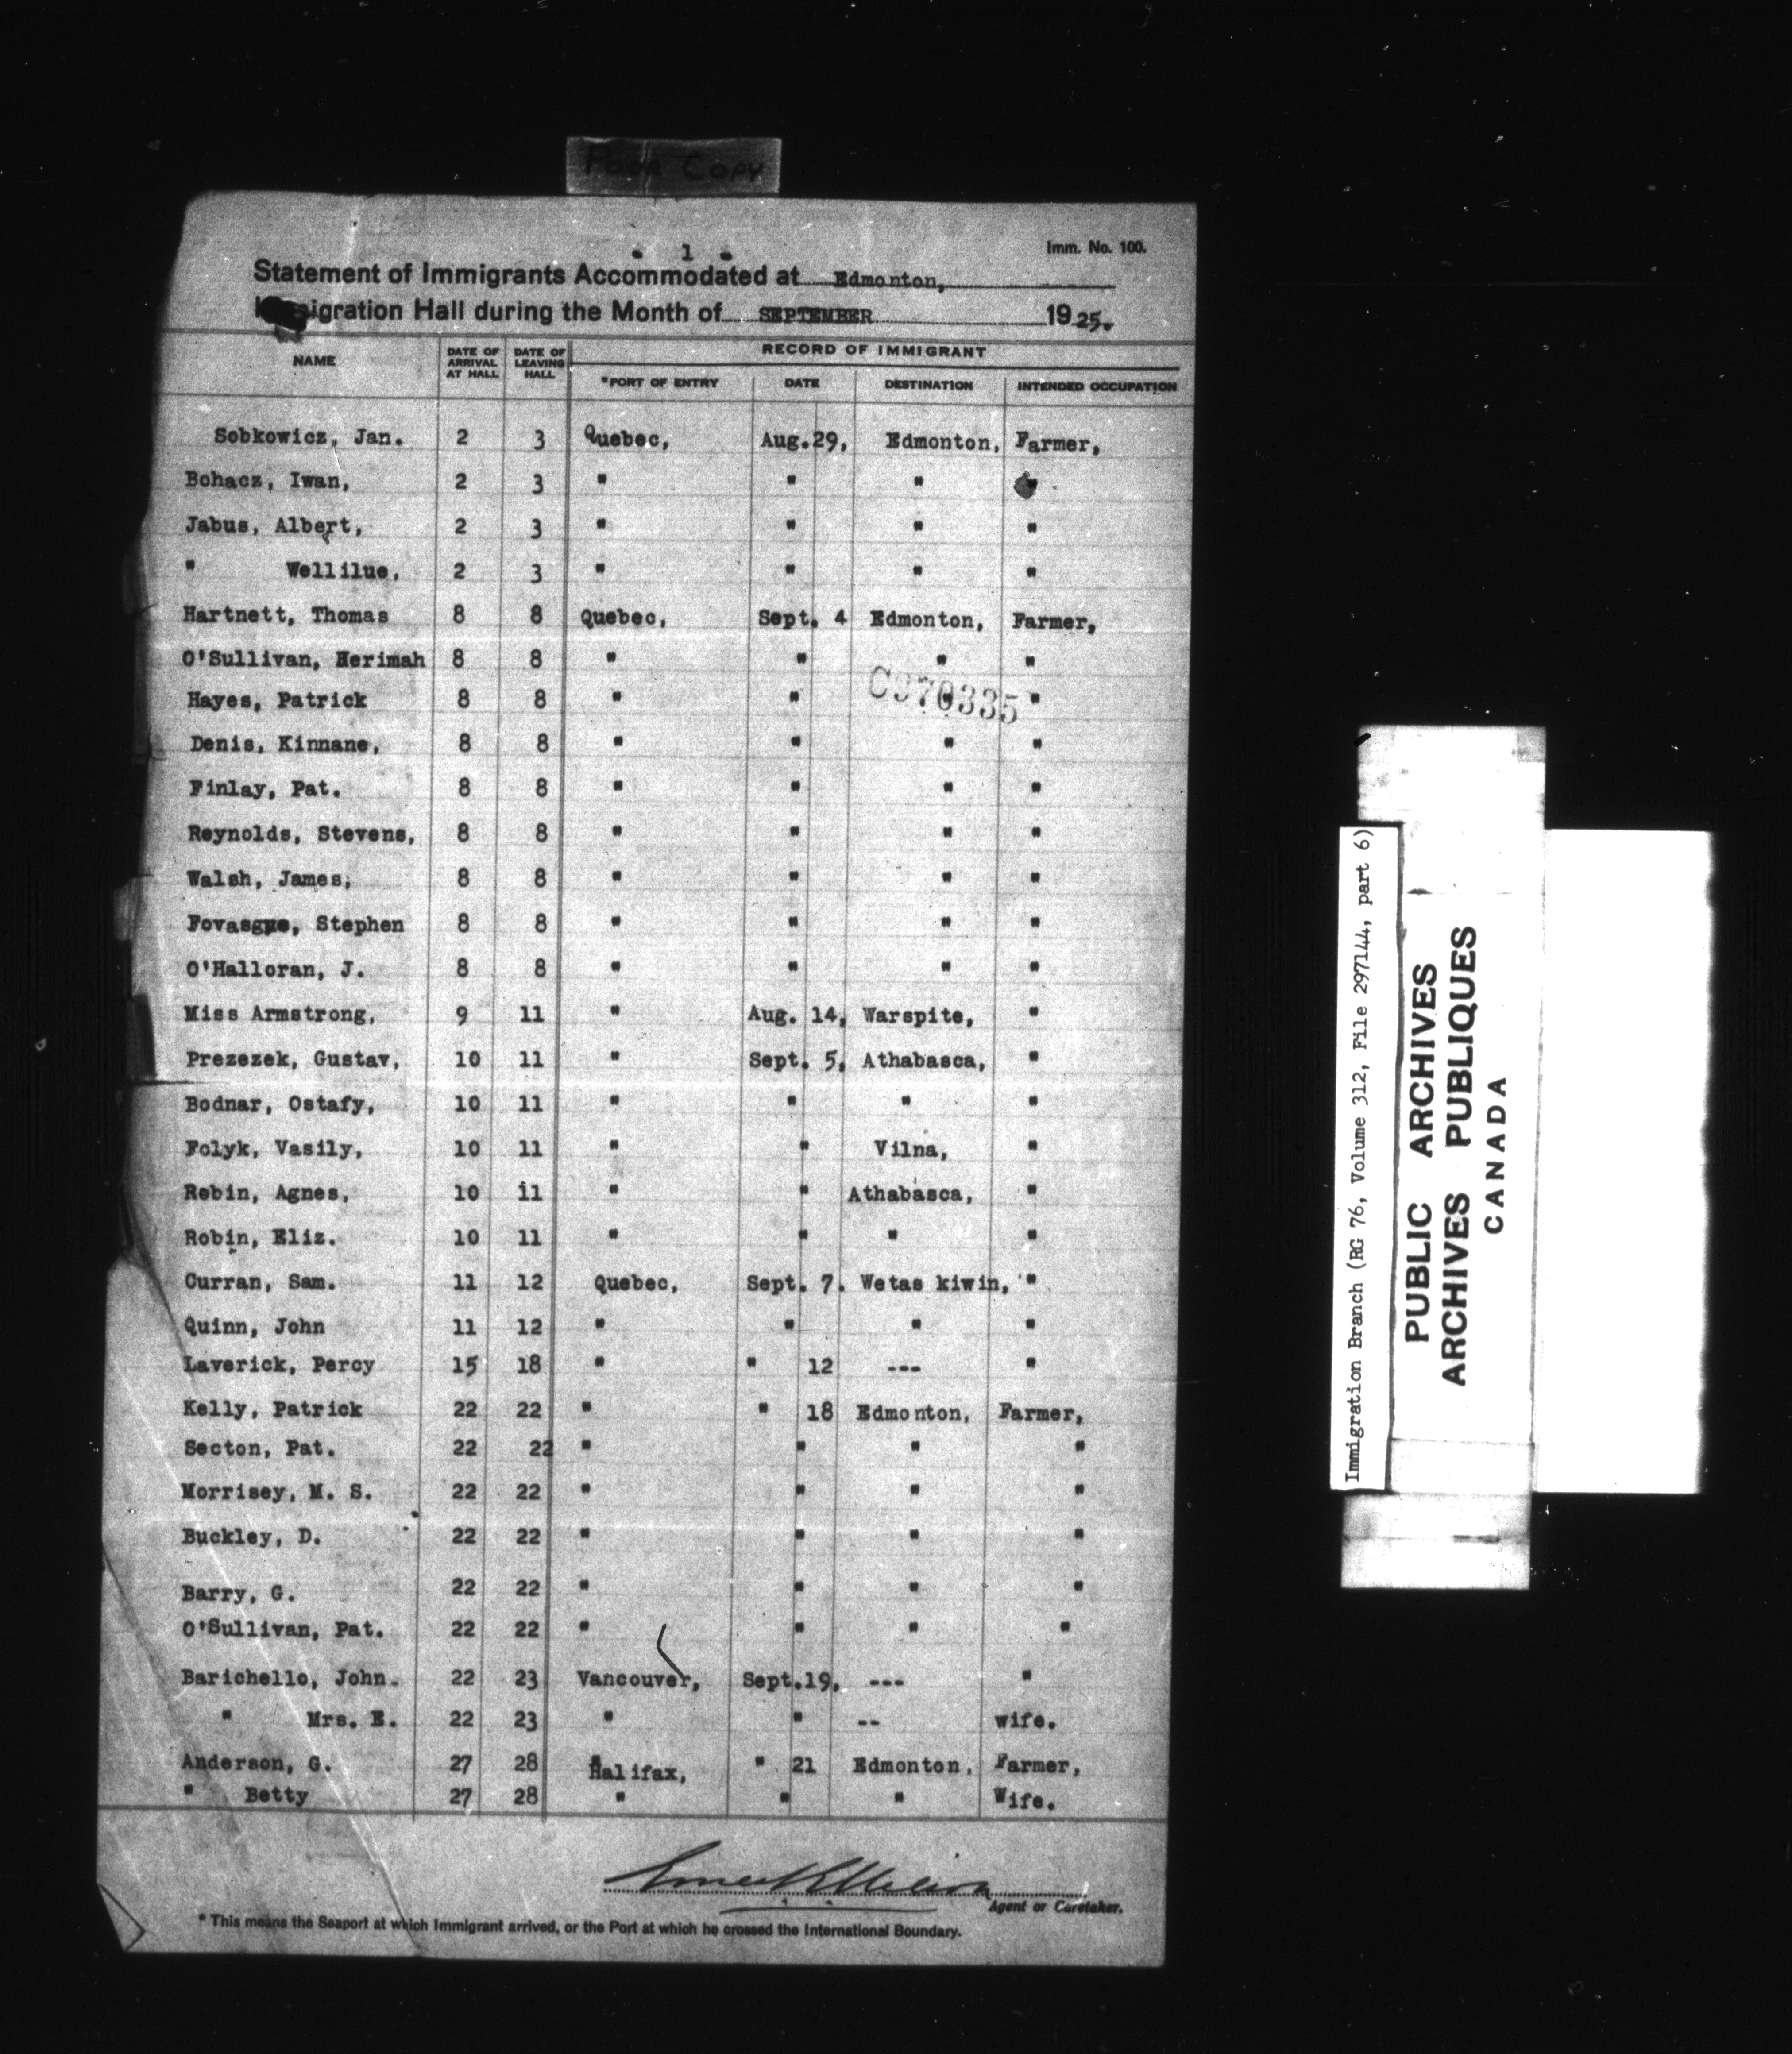 Poor Copy
Imm. No. 100.
- 1 -
Statement of Immigrants Accommodated at Edmonton,
Immigration Hall during the Month of SEPTEMBER 1925.
NAME DATE OF ARRIVAL AT HALL DATE OF LEAVING HALL RECORD OF IMMIGRANT
*PORT OF ENTRY DATE DESTINATION INTENDED OCCUPATION
Sobkowicz, Jan. 2 3 Quebec, Aug.29, Edmonton, Farmer,
Bohacz, Iwan, 2 3 " " " "
Jabus, Albert, 2 3 " " " "
" Wellilue, 2 3 " " " "
Hartnett, Thomas 8 8 Quebec, Sept. 4 Edmonton, Farmer,
O'Sullivan, Herimah 8 8 " " " "
C370335
Hayes, Patrick 8 8 " " " "
Denis, Kinnane, 8 8 " " " "
Finlay, Pat. 8 8 " " " "
Reynolds, Stevens, 8 8 " " " "
Walsh, James, 8 8 " " " "
Stephen 8 8 " " " "
O'Halloran, J. 8 8 " " " "
Miss Armstrong, 9 11 " Aug. 14, Warspite, "
Prezezek, Gustav, 10 11 " Sept. 5, Athabasca, "
Bodnar, Ostafy, 10 11 " " " "
Folyk, Vasily, 10 11 " " Vilna, "
Robin, Agnes, 10 11 " " Athabasca, "
Robin, Eliz. 10 11 " " " "
Curran, Sam. 11 12 Quebec, Sept. 7. Wetas kiwin, "
Quinn, John 11 12 " " " "
Laverick, Percy 15 18 " " 12 --- "
Kelly, Patrick 22 22 " " 18 Edmonton, Farmer,
Secton, Pat. 22 22 " " " "
Morrisey, M. S. 22 22 " " " "
Buckley, D. 22 22 " " " "
Barry, G. 22 22 " " " "
O'Sullivan, Pat. 22 22 " " " "
Barichello, John. 22 23 Vancouver, Sept.19, --- "
" Mrs. E. 22 23 " " -- wife.
Anderson, G. 27 28 Halifax, " 21 Edmonton, Farmer,
" Betty 27 28 " " " Wife.
Agent or Caretaker.
* This means the Seaport at which Immigrant arrived, or the Port at which he crossed the International Boundary.
Immigration Branch (RG 76, Volume 312, File 297144, part 6)
PUBLIC ARCHIVES
ARCHIVES PUBLIQUES
CANADA